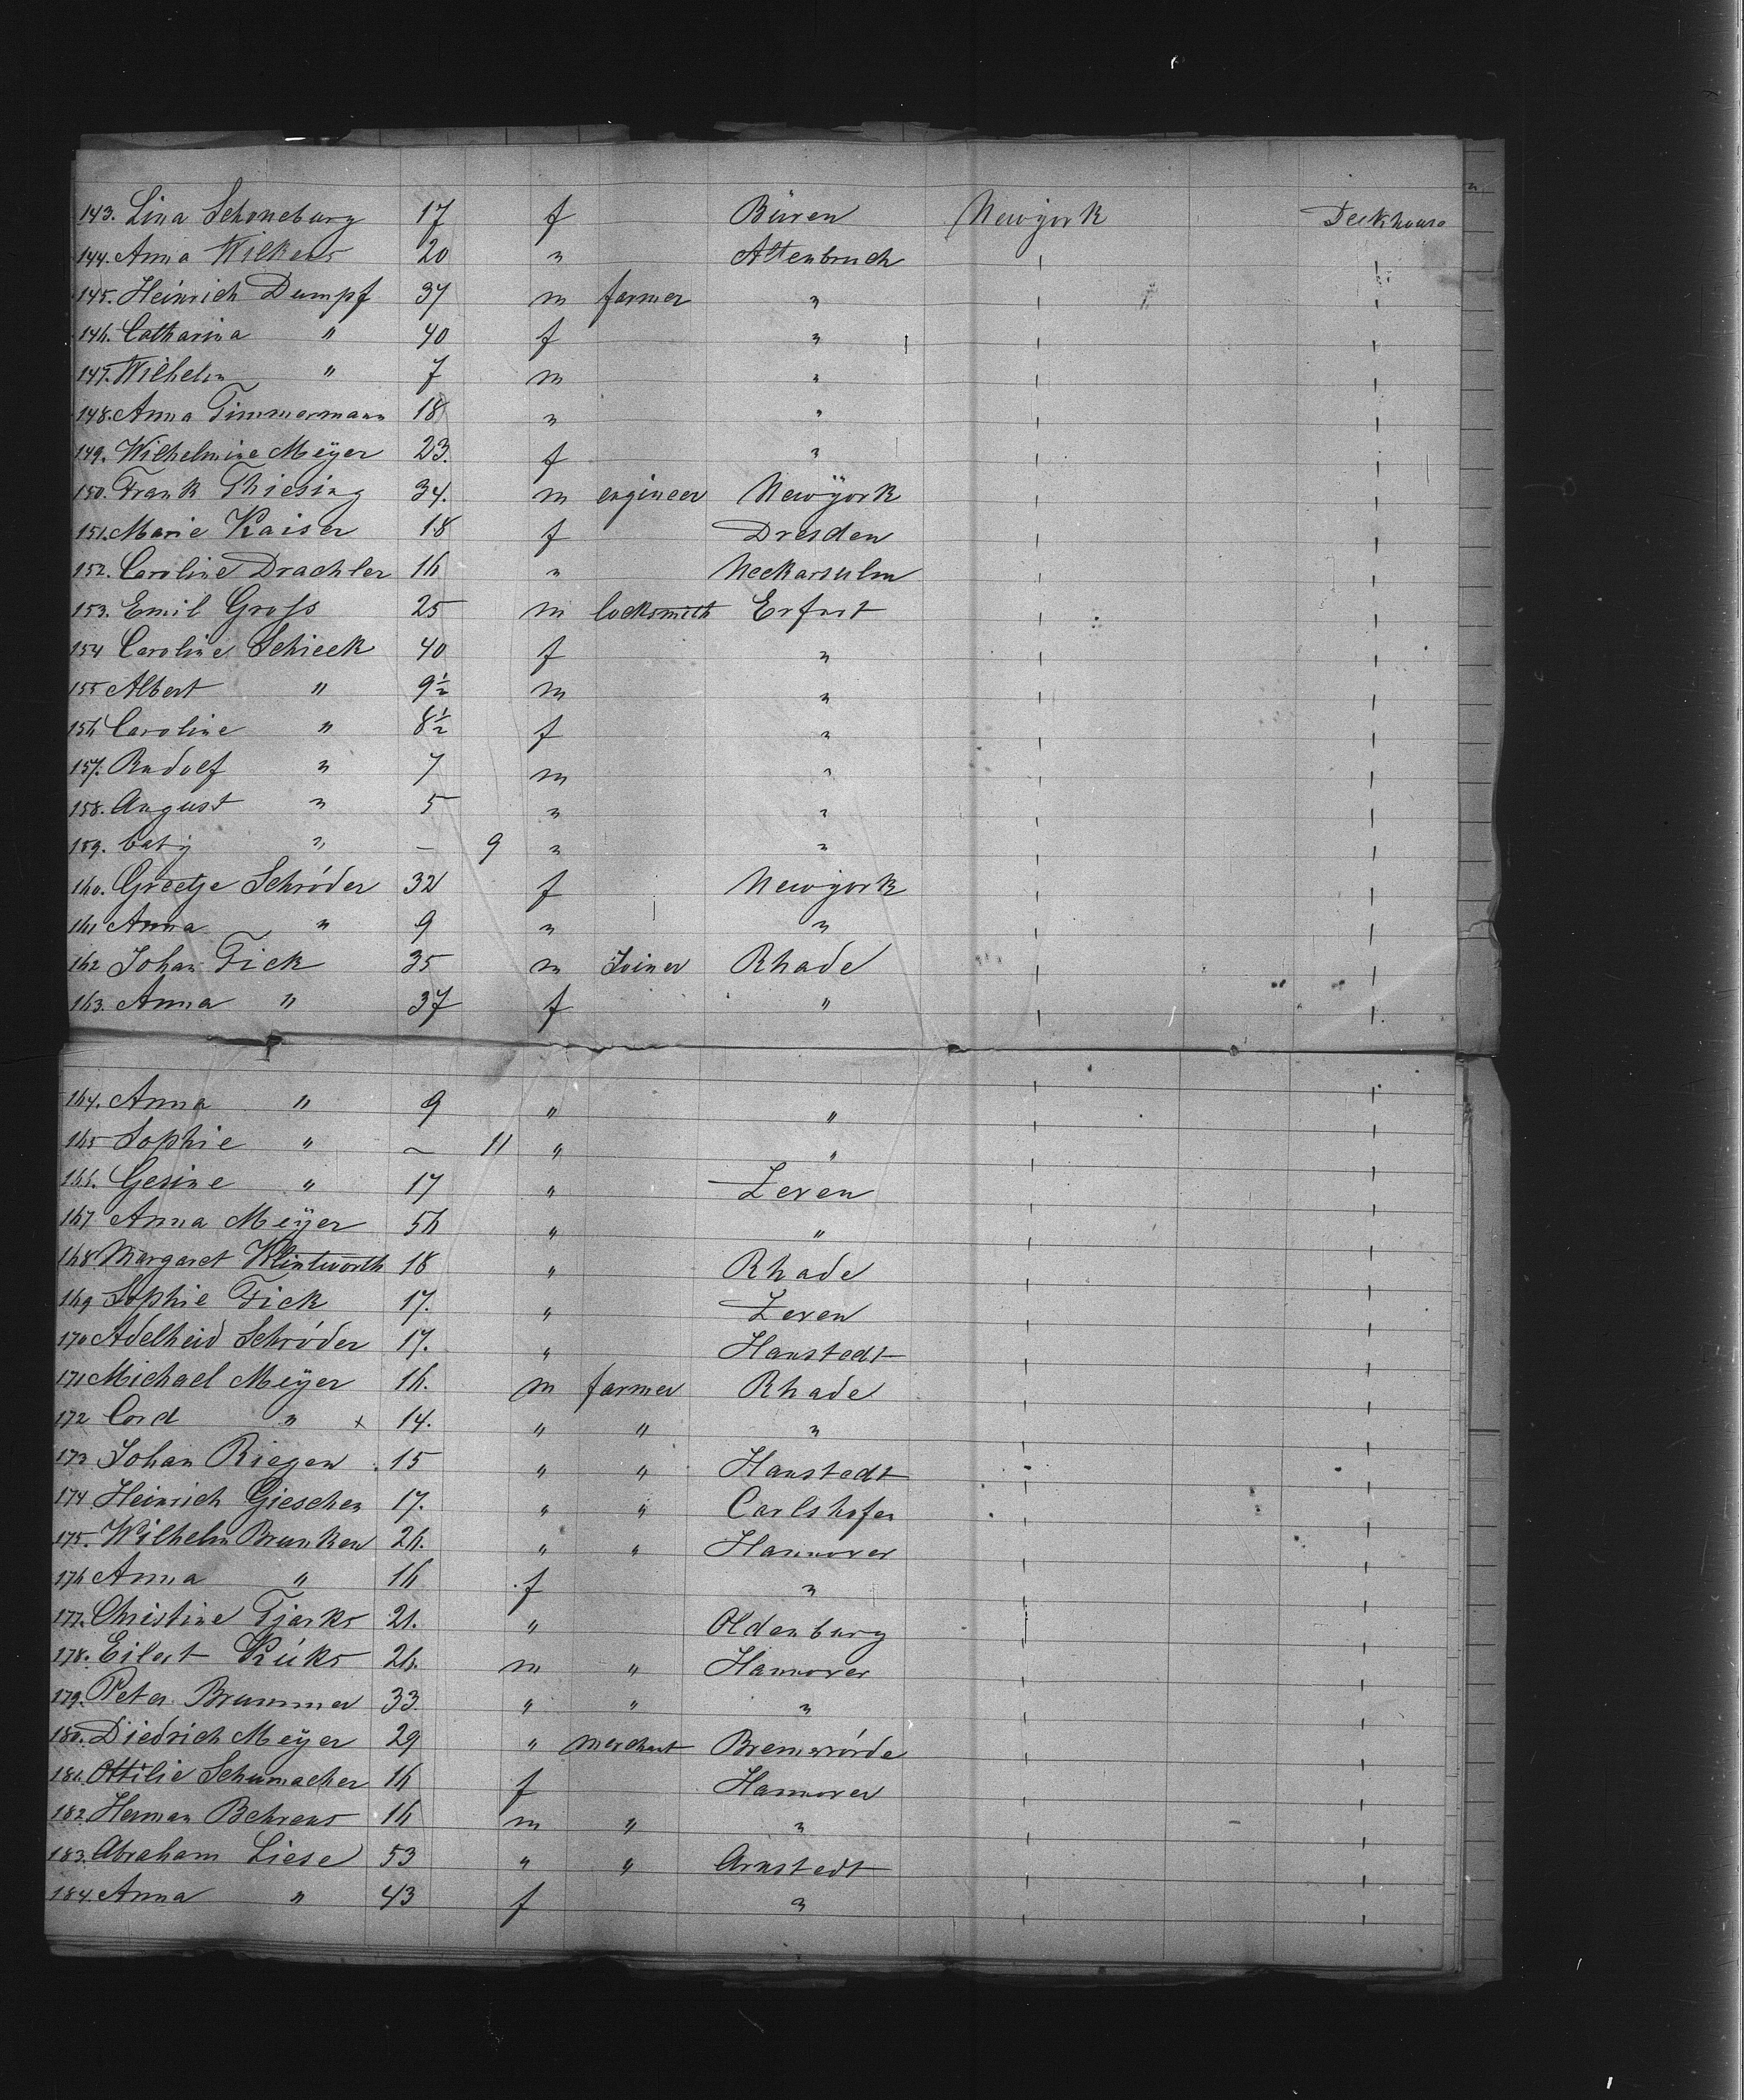 143. Lina Schoneburg 17 f Büren Newyork Deckhouse
144. Anna Wilkens 20 " Altenbruch "
145. Heinrich Dumpf 37 m farmer " "
146. Catharina " 40 f " "
147. Wilhelm " 7 m " "
148. Anna Timmermann 18 " " "
149. Wilhelmine Meÿer 23. f " "
150. Frank Thiesing 34. m engineer Newÿork "
151. Marie Kaiser 18 f Dresden "
152. Caroline Drachler 16 " Neckarsulm "
153. Emil Gross 25 m locksmith Erfurt "
154 Caroline Schieck 40 f " "
155 Albert " 9½ m " "
156 Caroline " 8½ f " "
157. Rudolf " 7 m " "
158. August " 5 " " "
159. baby " — 9 " " "
160. Greetje Schröder 32 f Newyork "
161 Anna " 9 " " "
162 Johan Fick 35 m Joiner Rhade "
163. Anna " 37 f " "
164. Anna " 9 " " "
165 Sophie " — 11 " " "
166. Gesine " 17 " Zeven "
167 Anna Meÿer 56 " " "
168 Margaret Klintworth 18 " Rhade "
169 Sophie Fick 17. " Zeven "
170 Adelheid Schröder 17. " Hanstedt "
171 Michael Meÿer 16. m farmer Rhade "
172 Cord " x 14. " " " "
173 Johan Riegen 15 " " Hanstedt "
174 Heinrich Gieschen 17. " " Carlshofen "
175. Wilhelm Brunken 26. " " Hannover "
176 Anna " 16 f " "
177. Christine Tjarks 21. " Oldenburg "
178. Eilert Küks 26. m " Hannover "
179. Peter Brummer 33. " " " "
180. Diedrich Meÿer 29 " merchant Bremervörde "
181. Ottilie Schumacher 16 f Hannover "
182 Herman Behrens 16 m " " "
183. Abraham Liese 53 " " Arnstedt "
184. Anna " 43 f " "